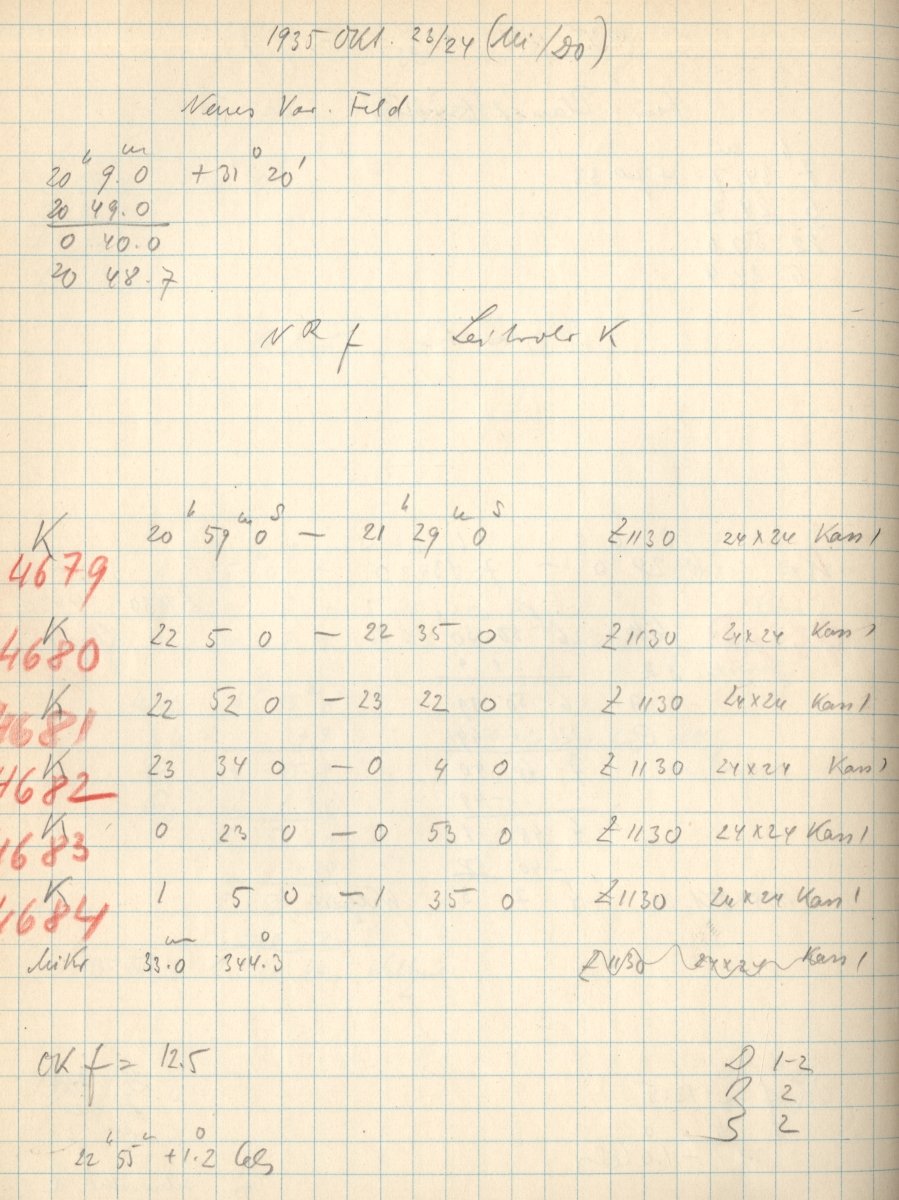 1935 Okt. 23/24 (Mi/Do)
Neues Var. Feld
20ʰ 9.0ᵐ +31° 20'
20 49.0
0 40.0
20 48.7
N R f Leitrohr K
K 20ʰ 59ᵐ 0ˢ — 21ʰ 29ᵐ 0ˢ Z1130 24x24 Kass 1
4679
K 22 5 0 — 22 35 0 Z1130 24x24 Kass 1
4680
K 22 52 0 — 23 22 0 Z1130 24x24 Kass 1
4681
K 23 34 0 — 0 4 0 Z1130 24x24 Kass 1
4682
K 0 23 0 — 0 53 0 Z1130 24x24 Kass 1
4683
K 1 5 0 — 1 35 0 Z1130 24x24 Kass 1
4684
Mikr 33.0ᵐ 344.3° Z1130 24x24 Kass 1
OK f = 12.5
D 1-2
R 2
S 2
22ʰ 55ᵐ +1.2° Cels